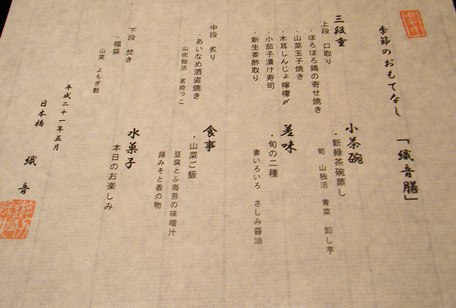 季節のおもてなし 「織音膳」
三段重
上段 口取り
・ほろほろ鶏の寄せ焼き
・山菜玉子焼き
・木耳しんじょ檸檬〆
・小茄子漬け寿司
・新生姜酢取り
中段 炙り
・あいなめ酒盗焼き
山家独活 茗荷っこ
下段 焚き
・福袋
山菜 よもぎ麩
小茶碗
・新緑茶碗蒸し
筍 山独活 青菜 卸し芋
差味
・旬の二種
妻いろいろ さしみ醤油
食事
・山菜ご飯
豆腐とふ海苔の味噌汁
蕗みそと香の物
水菓子
本日のお楽しみ
平成二十一年五月
日本橋 織音